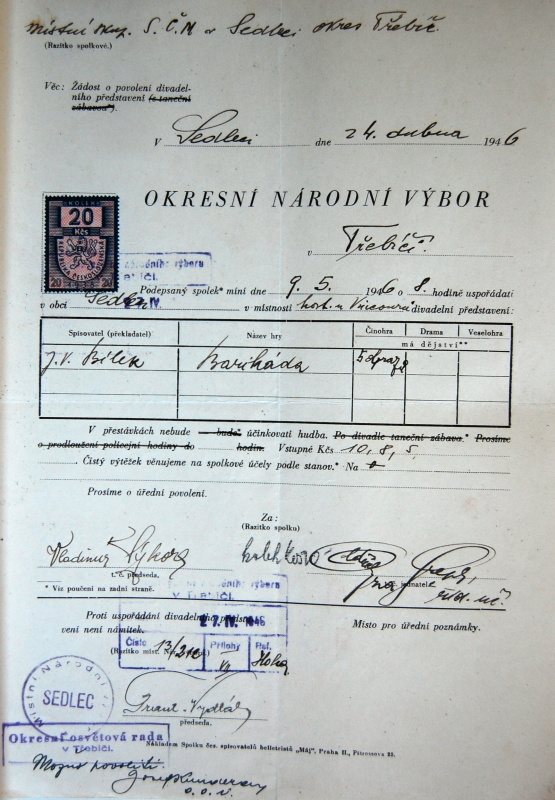 Místní skup. S. Č. M v Sedleci okres Třebíč.
(Razítko spolkové.)
Věc: Žádost o povolení divadel-
ního představení (s taneční
zábavou*).
V Sedleci dne 24. dubna 1946
OKRESNÍ NÁRODNÍ VÝBOR
KOLEK
20
Kčs
REPUBLIKA ČESKOSLOVENSKÁ
20 20
v Třebíči.
národního výboru
Třebíči.
Podepsaný spolek* míní dne 9. 5. 1946 o 8. hodině uspořádati
v obci Sedleci v místnosti host. u divadelní představení:
Spisovatel (překladatel) Název hry Činohra Drama Veselohra
má dějství**
J. V. Bílek Barikáda 5
V přestávkách nebude — bude* účinkovati hudba. Po divadle taneční zábava.* Prosíme
o prodloužení policejní hodiny do hodin. Vstupné Kčs 10, 8, 5,
Čistý výtěžek věnujeme na spolkové účely podle stanov.* Na
Prosíme o úřední povolení.
Za:
(Razítko spolku)
Vladimír Sýkora
t. č. předseda. jednatel
* Viz poučení na zadní straně.
národního výboru
v Třebíči.
Proti uspořádání divadelního představení
není námitek. IV. 1946
Místo pro úřední poznámky.
Číslo 13/212 Přílohy Ref.
(Razítko míst.
Místní Národní
SEDLEC
Frant. Vydlák
předseda.
Okresní osvětová rada
v Třebíči.
Nákladem Spolku čes. spisovatelů beletristů „Máj", Praha II., Pštrossova 23.
Možno povoliti.
o. o. r.